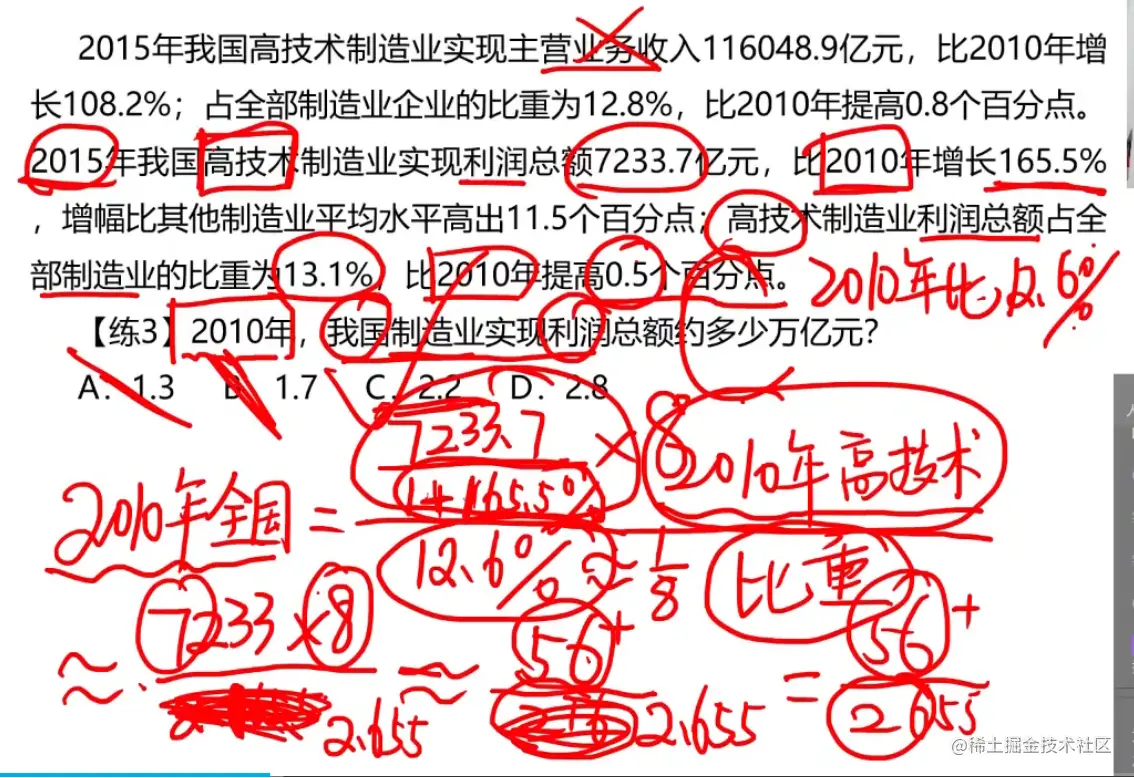 2015年我国高技术制造业实现主营业务收入116048.9亿元，比2010年增
长108.2%；占全部制造业企业的比重为12.8%，比2010年提高0.8个百分点。
2015年我国高技术制造业实现利润总额7233.7亿元，比2010年增长165.5%
，增幅比其他制造业平均水平高出11.5个百分点；高技术制造业利润总额占全
部制造业的比重为13.1%，比2010年提高0.5个百分点。
2010年比12.6%
【练3】2010年，我国制造业实现利润总额约多少万亿元？
A．1.3 B．1.7 C．2.2 D．2.8
7233.7 × 8
1+165.5%
2010年高技术
2010年全国 =
12.6% ≈ 1/8
比重
≈ 7233×8 ≈ 56+ = 56+
2.655 2.655 2655
@稀土掘金技术社区